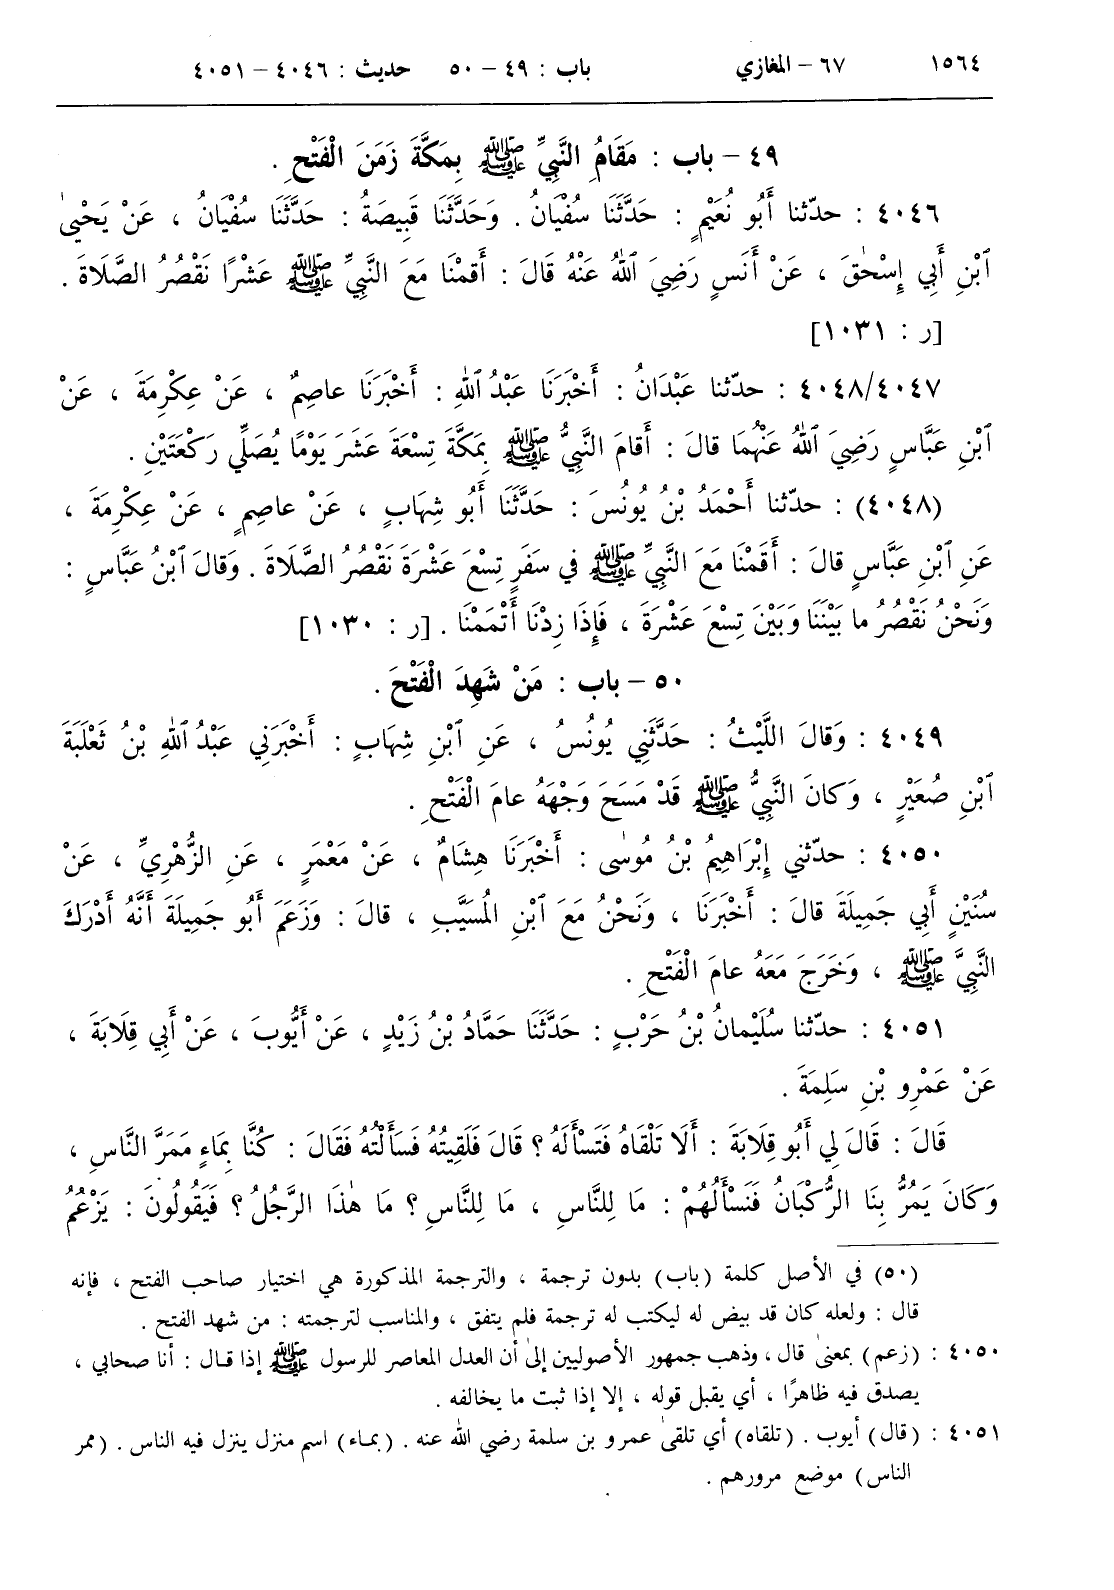 ١٥٦٤ ٦٧ – المغازي باب : ٤٩ – ٥٠ حديث : ٤٠٤٦ – ٤٠٥١
٤٩ – باب : مَقَامُ النَّبِيِّ ﷺ بِمَكَّةَ زَمَنَ الْفَتْحِ .
٤٠٤٦ : حدّثنا أَبُو نُعَيْمٍ : حَدَّثَنَا سُفْيَانُ . وَحَدَّثَنَا قَبِيصَةُ : حَدَّثَنَا سُفْيَانُ ، عَنْ يَحْيىٰ
ٱبْنِ أَبِي إِسْحٰقَ ، عَنْ أَنَسٍ رَضِيَ ٱللهُ عَنْهُ قَالَ : أَقَمْنَا مَعَ النَّبِيِّ ﷺ عَشْرًا نَقْصُرُ الصَّلَاةَ .
[ر : ١٠٣١]
٤٠٤٨/٤٠٤٧ : حدّثنا عَبْدَانُ : أَخْبَرَنَا عَبْدُ ٱللهِ : أَخْبَرَنَا عاصِمٌ ، عَنْ عِكْرِمَةَ ، عَنْ
ٱبْنِ عَبَّاسٍ رَضِيَ ٱللهُ عَنْهُمَا قالَ : أَقامَ النَّبِيُّ ﷺ بِمَكَّةَ تِسْعَةَ عَشَرَ يَوْمًا يُصَلِّي رَكْعَتَيْنِ .
(٤٠٤٨) : حدّثنا أَحْمَدُ بْنُ يُونُسَ : حَدَّثَنَا أَبُو شِهَابٍ ، عَنْ عاصِمٍ ، عَنْ عِكْرِمَةَ ،
عَنِ ٱبْنِ عَبَّاسٍ قالَ : أَقَمْنَا مَعَ النَّبِيِّ ﷺ في سَفَرٍ تِسْعَ عَشْرَةَ نَقْصُرُ الصَّلَاةَ . وَقالَ ٱبْنُ عَبَّاسٍ :
وَنَحْنُ نَقْصُرُ ما بَيْنَنَا وَبَيْنَ تِسْعَ عَشْرَةَ ، فَإِذَا زِدْنَا أَتْمَمْنَا . [ر : ١٠٣٠]
٥٠ – باب : مَنْ شَهِدَ الْفَتْحَ .
٤٠٤٩ : وَقالَ اللَّيْثُ : حَدَّثَنِي يُونُسُ ، عَنِ ٱبْنِ شِهَابٍ : أَخْبَرَنِي عَبْدُ ٱللهِ بْنُ ثَعْلَبَةَ
ٱبْنِ صُعَيْرٍ ، وَكانَ النَّبِيُّ ﷺ قَدْ مَسَحَ وَجْهَهُ عامَ الْفَتْحِ .
٤٠٥٠ : حدّثني إِبْرَاهِيمُ بْنُ مُوسٰى : أَخْبَرَنَا هِشَامٌ ، عَنْ مَعْمَرٍ ، عَنِ الزُّهْرِيِّ ، عَنْ
سُنَيْنٍ أَبِي جَمِيلَةَ قالَ : أَخْبَرَنَا ، وَنَحْنُ مَعَ ٱبْنِ الْمُسَيَّبِ ، قالَ : وَزَعَمَ أَبُو جَمِيلَةَ أَنَّهُ أَدْرَكَ
النَّبِيَّ ﷺ ، وَخَرَجَ مَعَهُ عامَ الْفَتْحِ .
٤٠٥١ : حدّثنا سُلَيْمانُ بْنُ حَرْبٍ : حَدَّثَنَا حَمَّادُ بْنُ زَيْدٍ ، عَنْ أَيُّوبَ ، عَنْ أَبِي قِلَابَةَ ،
عَنْ عَمْرِو بْنِ سَلِمَةَ .
قَالَ : قَالَ لِي أَبُو قِلَابَةَ : أَلَا تَلْقَاهُ فَتَسْأَلَهُ ؟ قَالَ فَلَقِيتُهُ فَسَأَلْتُهُ فَقَالَ : كُنَّا بِمَاءٍ مَمَرَّ النَّاسِ ،
وَكَانَ يَمُرُّ بِنَا الرُّكْبَانُ فَنَسْأَلُهُمْ : مَا لِلنَّاسِ ، مَا لِلنَّاسِ ؟ مَا هٰذَا الرَّجُلُ ؟ فَيَقُولُونَ : يَزْعُمُ
(٥٠) في الأصل كلمة (باب) بدون ترجمة ، والترجمة المذكورة هي اختيار صاحب الفتح ، فإنه
قال : ولعله كان قد بيض له ليكتب له ترجمة فلم يتفق ، والمناسب لترجمته : من شهد الفتح .
٤٠٥٠ : (زعم) بمعنىٰ قال ، وذهب جمهور الأصوليين إلىٰ أن العدل المعاصر للرسول ﷺ إذا قال : أنا صحابي ،
يصدق فيه ظاهرًا ، أي يقبل قوله ، إلا إذا ثبت ما يخالفه .
٤٠٥١ : (قال) أيوب . (تلقاه) أي تلقىٰ عمرو بن سلمة رضي الله عنه . (بماء) اسم منزل ينزل فيه الناس . (ممر
الناس) موضع مرورهم .